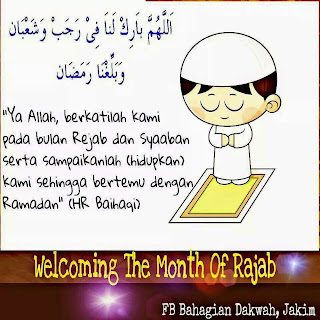 اَللَّهُمَّ بَارِكْ لَنَا فِىْ رَجَبْ وَشَعْبَان
وَبَلِّغْنَا رَمَضَان
"Ya Allah, berkatilah kami
pada bulan Rejab dan Syaaban
serta sampaikanlah (hidupkan)
kami sehingga bertemu dengan
Ramadan" (HR Baihaqi)
Welcoming The Month Of Rajab
FB Bahagian Dakwah, Jakim